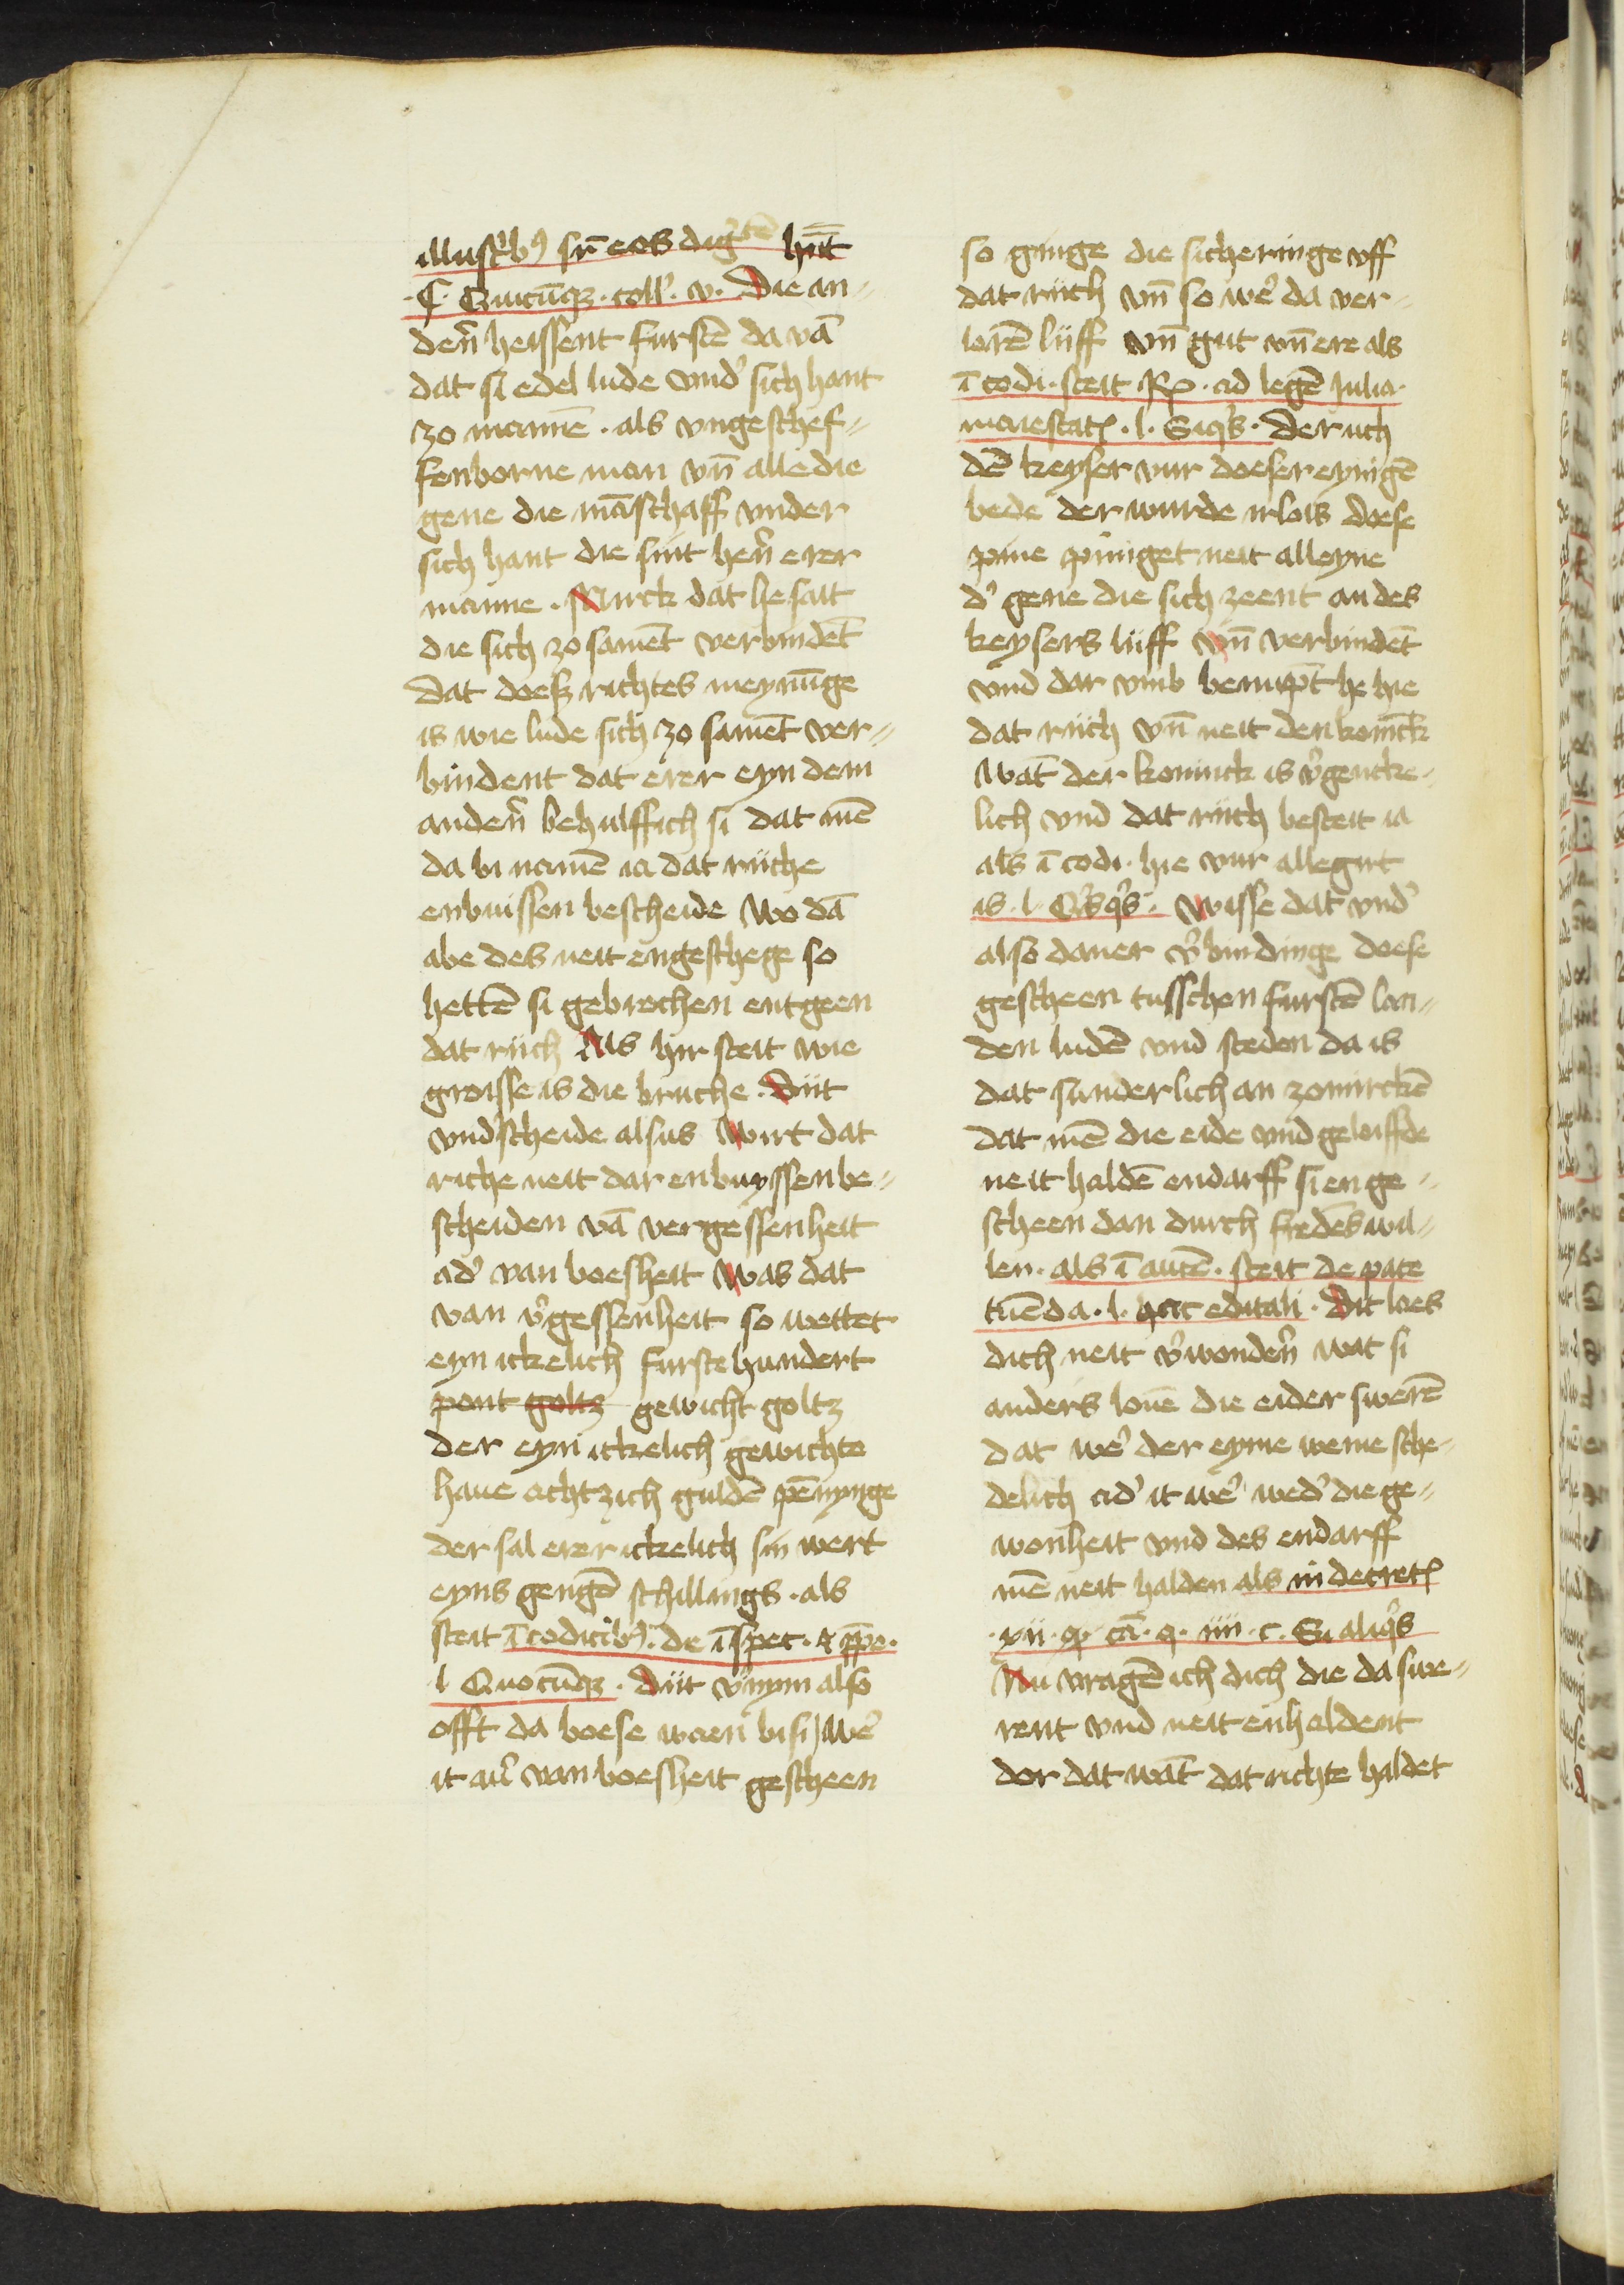 illustͥbꝰ sūt eos digͥtē hnt̄
.C. Quicūqꝫ. coll'. v. Die an⸗
den̄ heissent furstē da vā
dat si edel lude vnd' sich hant
zo mannē. als vngeschef⸗
fenborne man vn̄ alle die
gene die māschaff vnder
sich hant die sint hern̄ erer
manne. Mirck dat he sait
die sich zo samēt verbindēt
dat doeß richtes meynūge
is wie lude sich zo samēt ver⸗
bindent dat erer eyn dem
anden̄ behulffich si dat mē
da bi namē ia dat riiche
enbuissen bescheide Wo dā
abe des neit engeschege so
hettē si gebrochen entgeen
dat riich Als hir steit wie
groisse is die bruche. Diit
vnd'scheide alsus Wirt dat
riche neit dar enbuyssen be⸗
scheiden vā vergessenheit
ad' van boesheit Was dat
van v'gessenheit so wettet
eyn ickelich furste hundert
pont goltz gewicht goltz
der eyn ickelich gewichte
haue achtzich guldē pēnynge
der sal erer ickelich sin wert
eyns gengē schillings. als
steit ī codicibꝰ. de īspec. &
l Quocūqꝫ. Diit v'nym also
offt da boese waen bi si) we'
it au' van boesheit gescheen
so ginge die sicheringe vff
dat riich vn̄ so we' da ver⸗
lorē liiff vn̄ gut vn̄ ere als
ī codi. steit Rx. ad legē Iulia.
maiestatꝭ. l. Siqͥs. Der uch
dē keyser vur doeser eynigē
bede der wurde irlois doese
pine piniget neit alleyne
d' gene die sich zeent an des
keysers liiff vn̄ verbindēt
vnd dar vmb benuͤpt he hie
dat riich vn̄ neit den konīck
Wāt der koninck is v'gencke⸗
lich vnd dat riich besteit ia
als ī codi. hie vur allegirt
is. l. Qͥsqͥs. Wisse dat vnd'
also daner v'bindinge doese
gescheen tusschen furstē lan⸗
den ludē vnd steden da is
dat sunderlich an zomirckē
dat mē die eide vnd geloiffde
neit haldē endarff si en ge⸗
scheen dan durch fredes wil⸗
len. als ī autē. steit de pate
tuēda. l. hac editali. Dit loes
dich neit v'wonden̄ wat si
anders louē die eider swerē
dat we' der eyme weme sche⸗
delich ad' it we' wed' die ge⸗
wonheit vnd des endarff
mē neit halden als in decretꝭ
.xxii. q. cā. q. iiii. c. Si aliqͥs
Nu vragē ich dich die da swe⸗
rent vnd neit enhaldent
dor dat wāt dat richte haldet